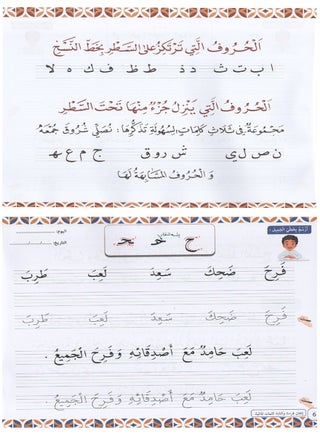 اَلْحُرُوفُ الَّتِي تَرْتَكِزُ عَلَى السَّطْرِ بِخَطِّ النَّسْخِ
ا ب ت ث د ذ ط ظ ف ك ه لا
اَلْحُرُوفُ الَّتِي يَنْزِلُ جُزْءٌ مِنْهَا تَحْتَ السَّطْرِ
مَجْمُوعَةٌ فِي ثَلَاثِ كَلِمَاتٍ لِسُهُولَةِ تَذَكُّرِهَا: نُصَلِّي شُرُوقَ جُمُعَةٍ
ن ص ل ي ش ر و ق ج م ع ـهـ
وَ الْحُرُوفُ الْمُشَابِهَةُ لَهَا
أرسم بخطي الجميل:
اليوم:
التاريخ:
ح حـ ـحـ
فَرِحَ ضَحِكَ سَعِدَ لَعِبَ طَرِبَ
فَرِحَ ضَحِكَ سَعِدَ لَعِبَ طَرِبَ
لَعِبَ حَامِدٌ مَعَ أَصْدِقَائِهِ وَفَرِحَ الْجَمِيعُ .
لَعِبَ حَامِدٌ مَعَ أَصْدِقَائِهِ وَفَرِحَ الْجَمِيعُ .
6